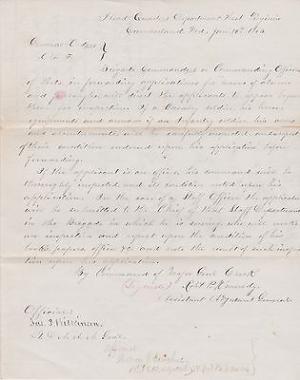 Head Quarters Department West Virginia
Cumberland, Md., Jan 10th
General Orders
No
Brigade Commanders or Commanding Officers
of Posts in forwarding applications for leaves of absence
and furloughs will direct the applicants to appear before
them for inspection. If a Cavalry soldier his horse
equipments and arms if an Infantry soldier his arms
and accoutrements will be carefully inspected and
of their condition endorsed upon his application before
forwarding.
If the applicant is an officer his command will be
thoroughly inspected and its condition noted upon his
application. In the case of a Staff Officer the application
will be submitted to the Chief of that Staff Department
in the Brigade in which he is serving who will make
an inspection and report upon the condition of his
books papers office &c and note the result of such inspec
tion upon his application.
By Command of Major Genl Crook
(Signed) Robt P. Kennedy
Assistant Adjutant General
Official
Jas. L.
A. A. A. Genl